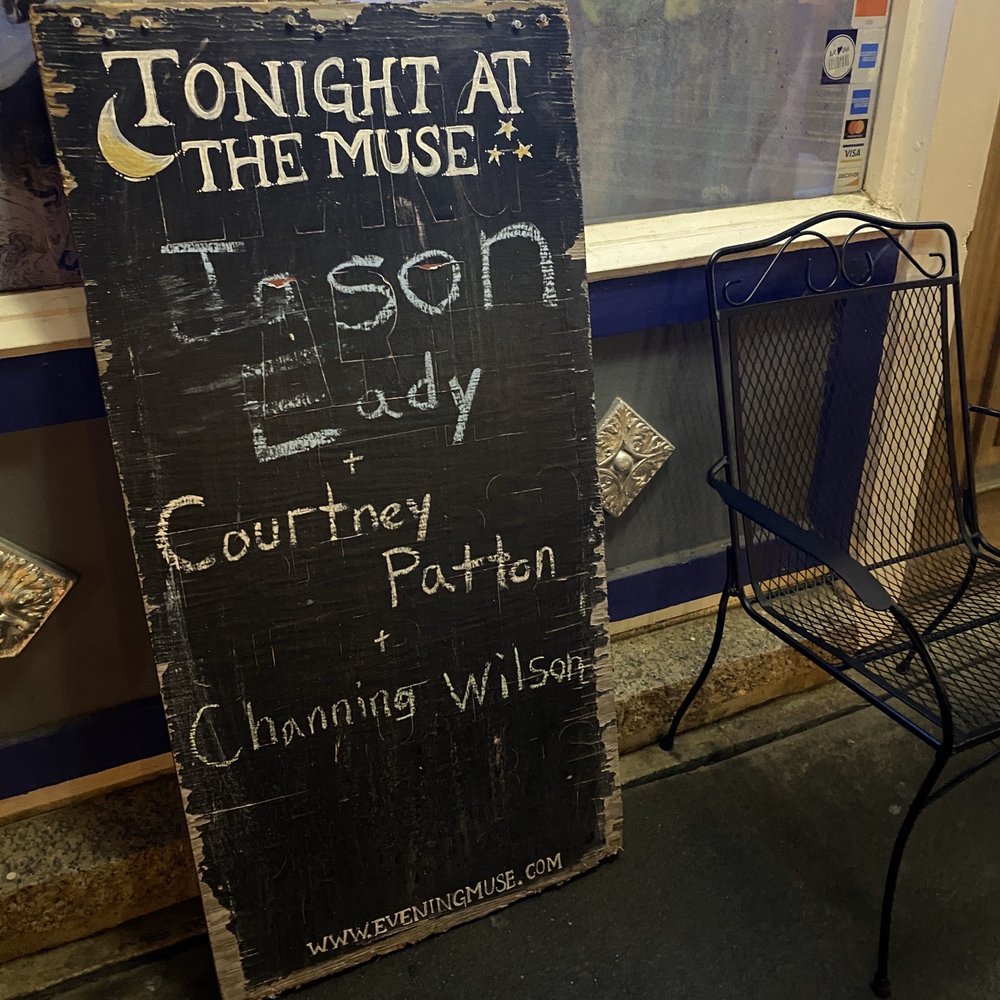 TONIGHT AT
THE MUSE
Jason
Eady
+
Courtney
Patton
+
Channing Wilson
WWW.EVENINGMUSE.COM
VISA
DISCOVER